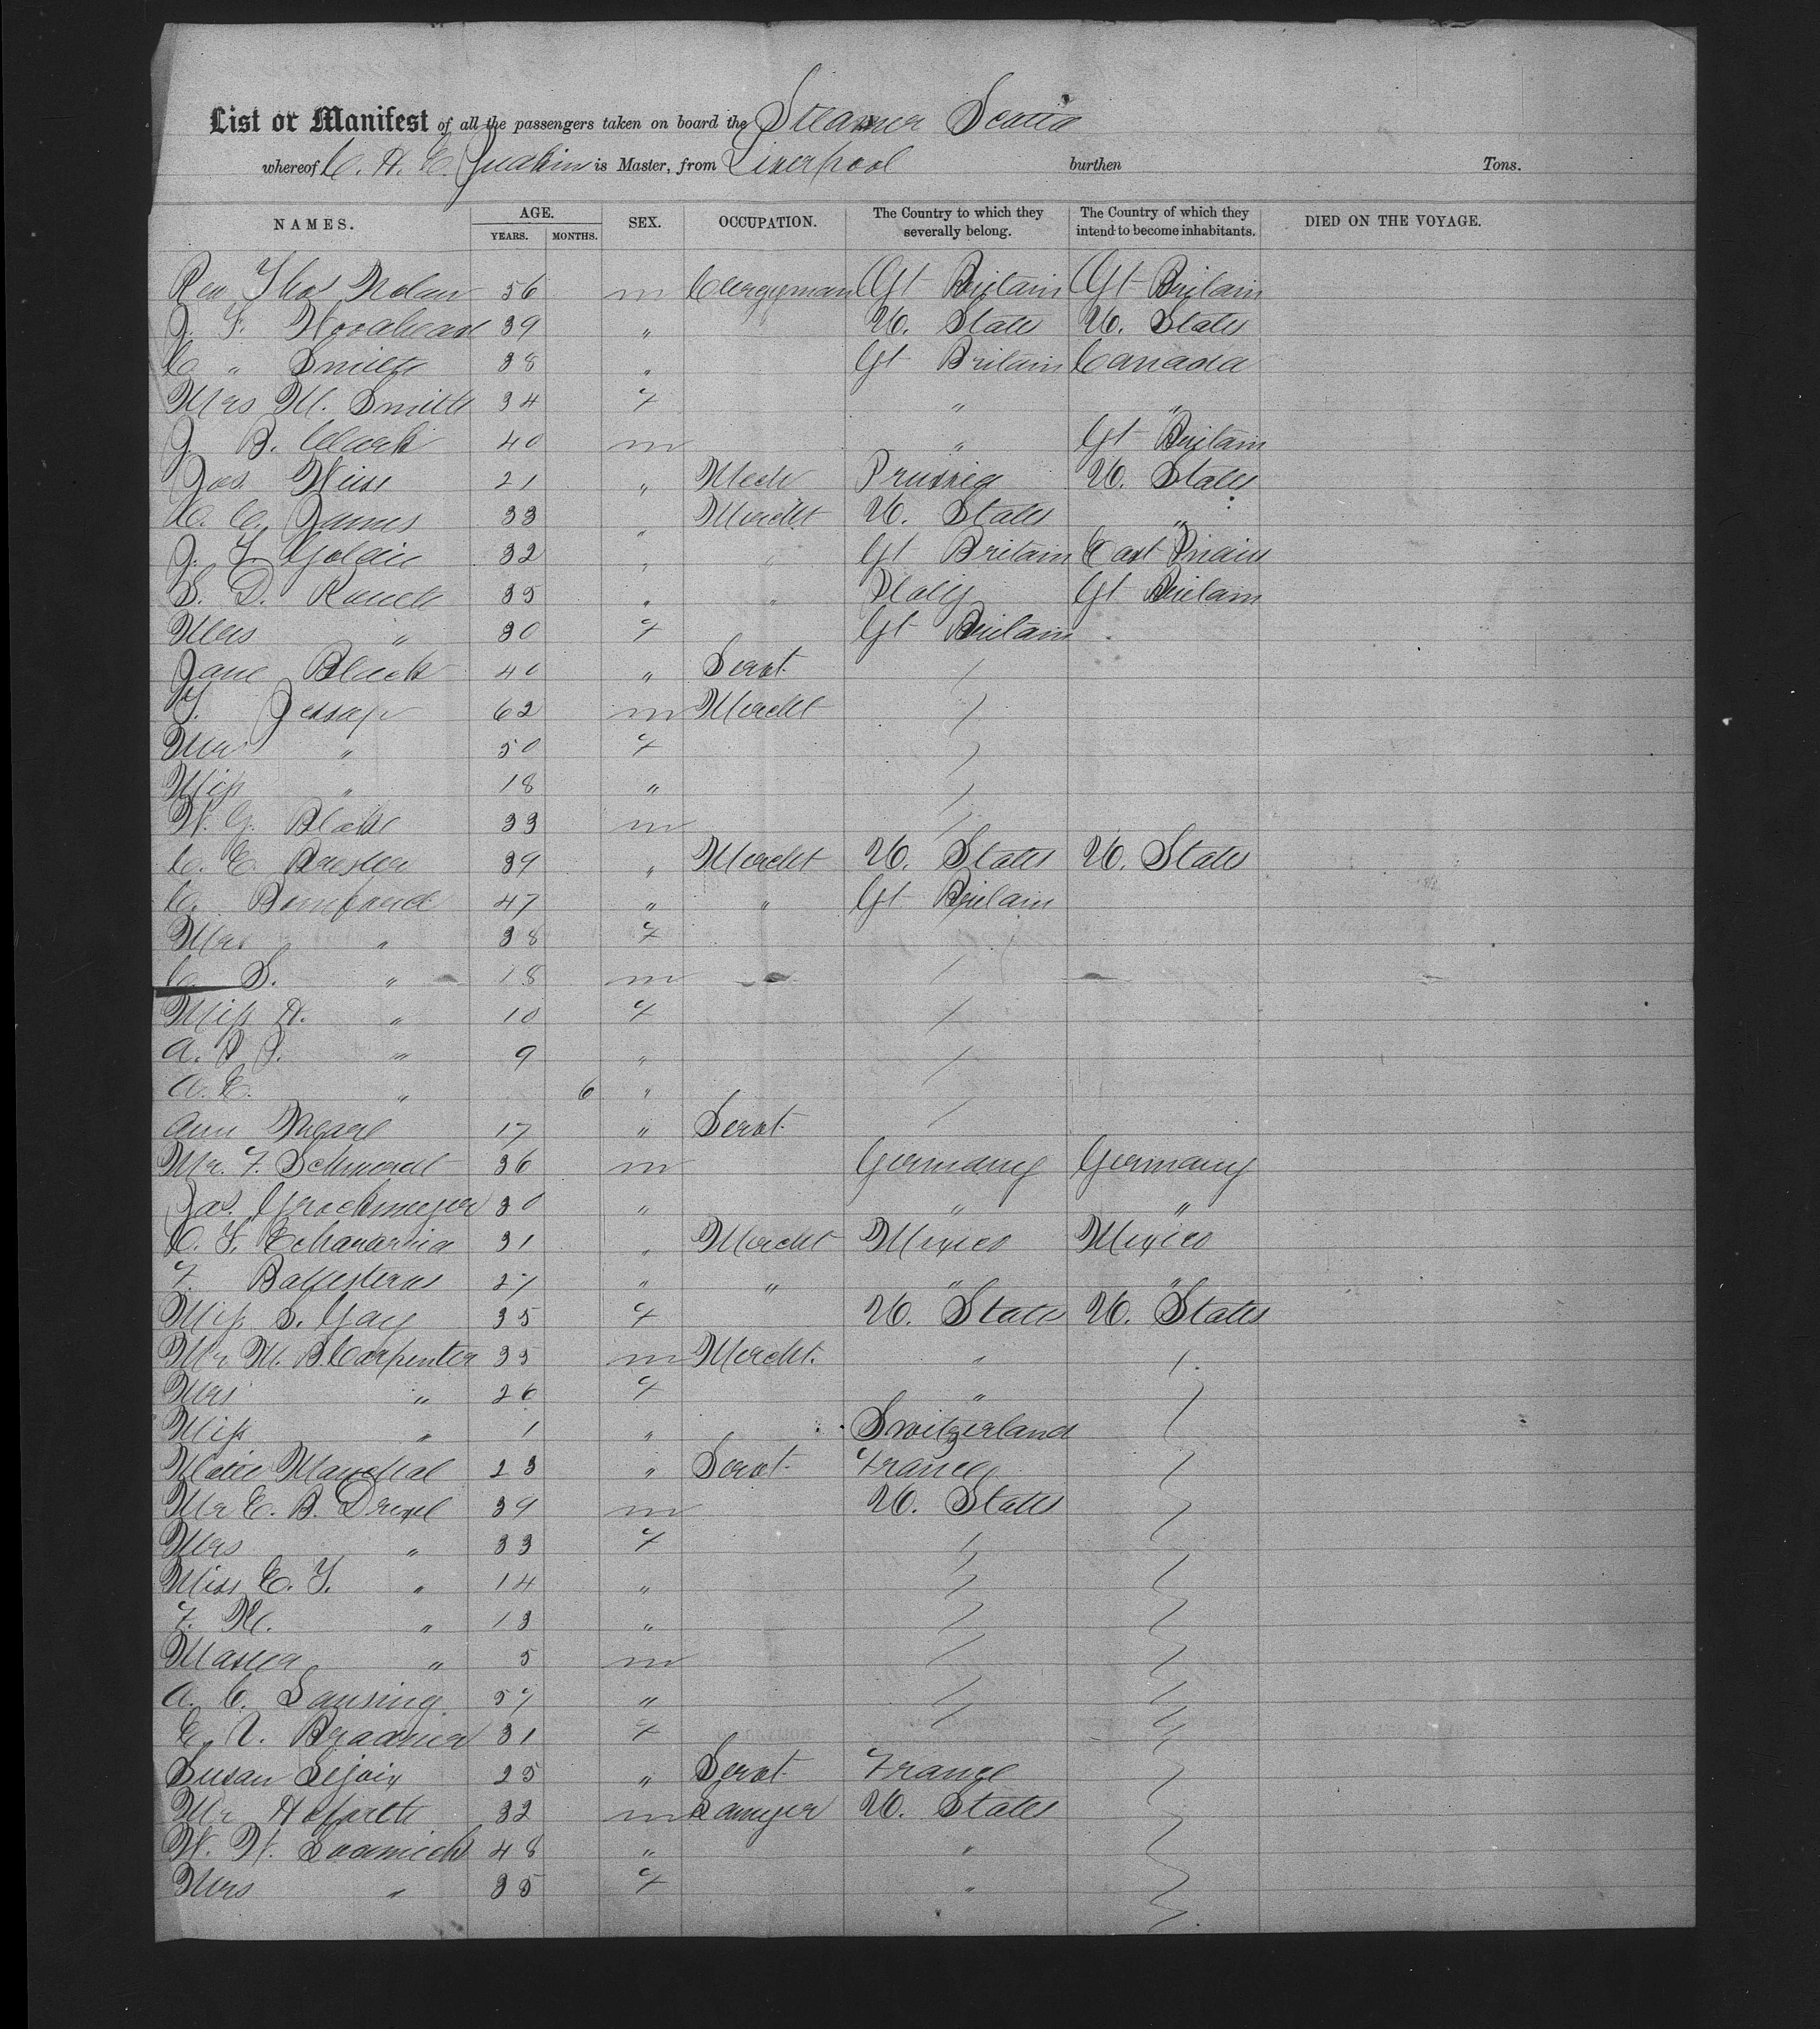 List or Manifest of all the passengers taken on board the Steamer Scotia
whereof C. H. E. Judkins is Master, from Liverpool burthen Tons.
NAMES. AGE. YEARS. MONTHS. SEX. OCCUPATION. The Country to which they severally belong. The Country of which they intend to become inhabitants. DIED ON THE VOYAGE.
Rev Thos Nolan 56 m Clergyman Gt Britain Gt Britain
J. F. Woodhead 39 " U. States U. States
C " Smith 38 " Gt Britain Canada
Mrs M. Smith 34 f " "
J. B. Clark 40 m " Gt Britain
Jos Weiss 21 " Mech Prussia U. States
C. James 33 " Mercht U. States "
J. T. Goldie 32 " " Gt Britain East
S. D. 35 " " Italy Gt Britain
Mrs " 30 f Gt Britain
Jane Black 40 " Servt
T. Jessop 62 m Mercht
Mrs " 50 f
Miss " 18 "
W. G. Blake 33 m
C. E. 39 " Mercht U. States U. States
C. 47 " " Gt Britain
Mrs " 38 f
C. S. " 18 m
Miss A. " 10 f
A. " 9 "
A. E. " 6 "
Ann 17 " Servt
Mr. F. Schmidt 36 m Germany Germany
Jos. 30 " " "
C. F. Echavarria 31 " Mercht Mexico Mexico
F. Ballesteros 27 " " " "
Miss S. Gay 35 f U. States U. States
Mr M. B. Carpenter 35 m Mercht. "
Mrs " 26 f "
Miss " 1 " Switzerland
Marie Marechal 23 " Servt France
Mr E. B. Drexel 39 m U. States
Mrs " 33 f
Miss E. T. " 14 "
F. M. " 13 "
Master " 5 m
A. C. Lansing 57 "
E. 31 f
Susan Lejoix 25 " Servt France
Mr 32 m Lawyer U. States
W. W. 48 " "
Mrs " 35 f "